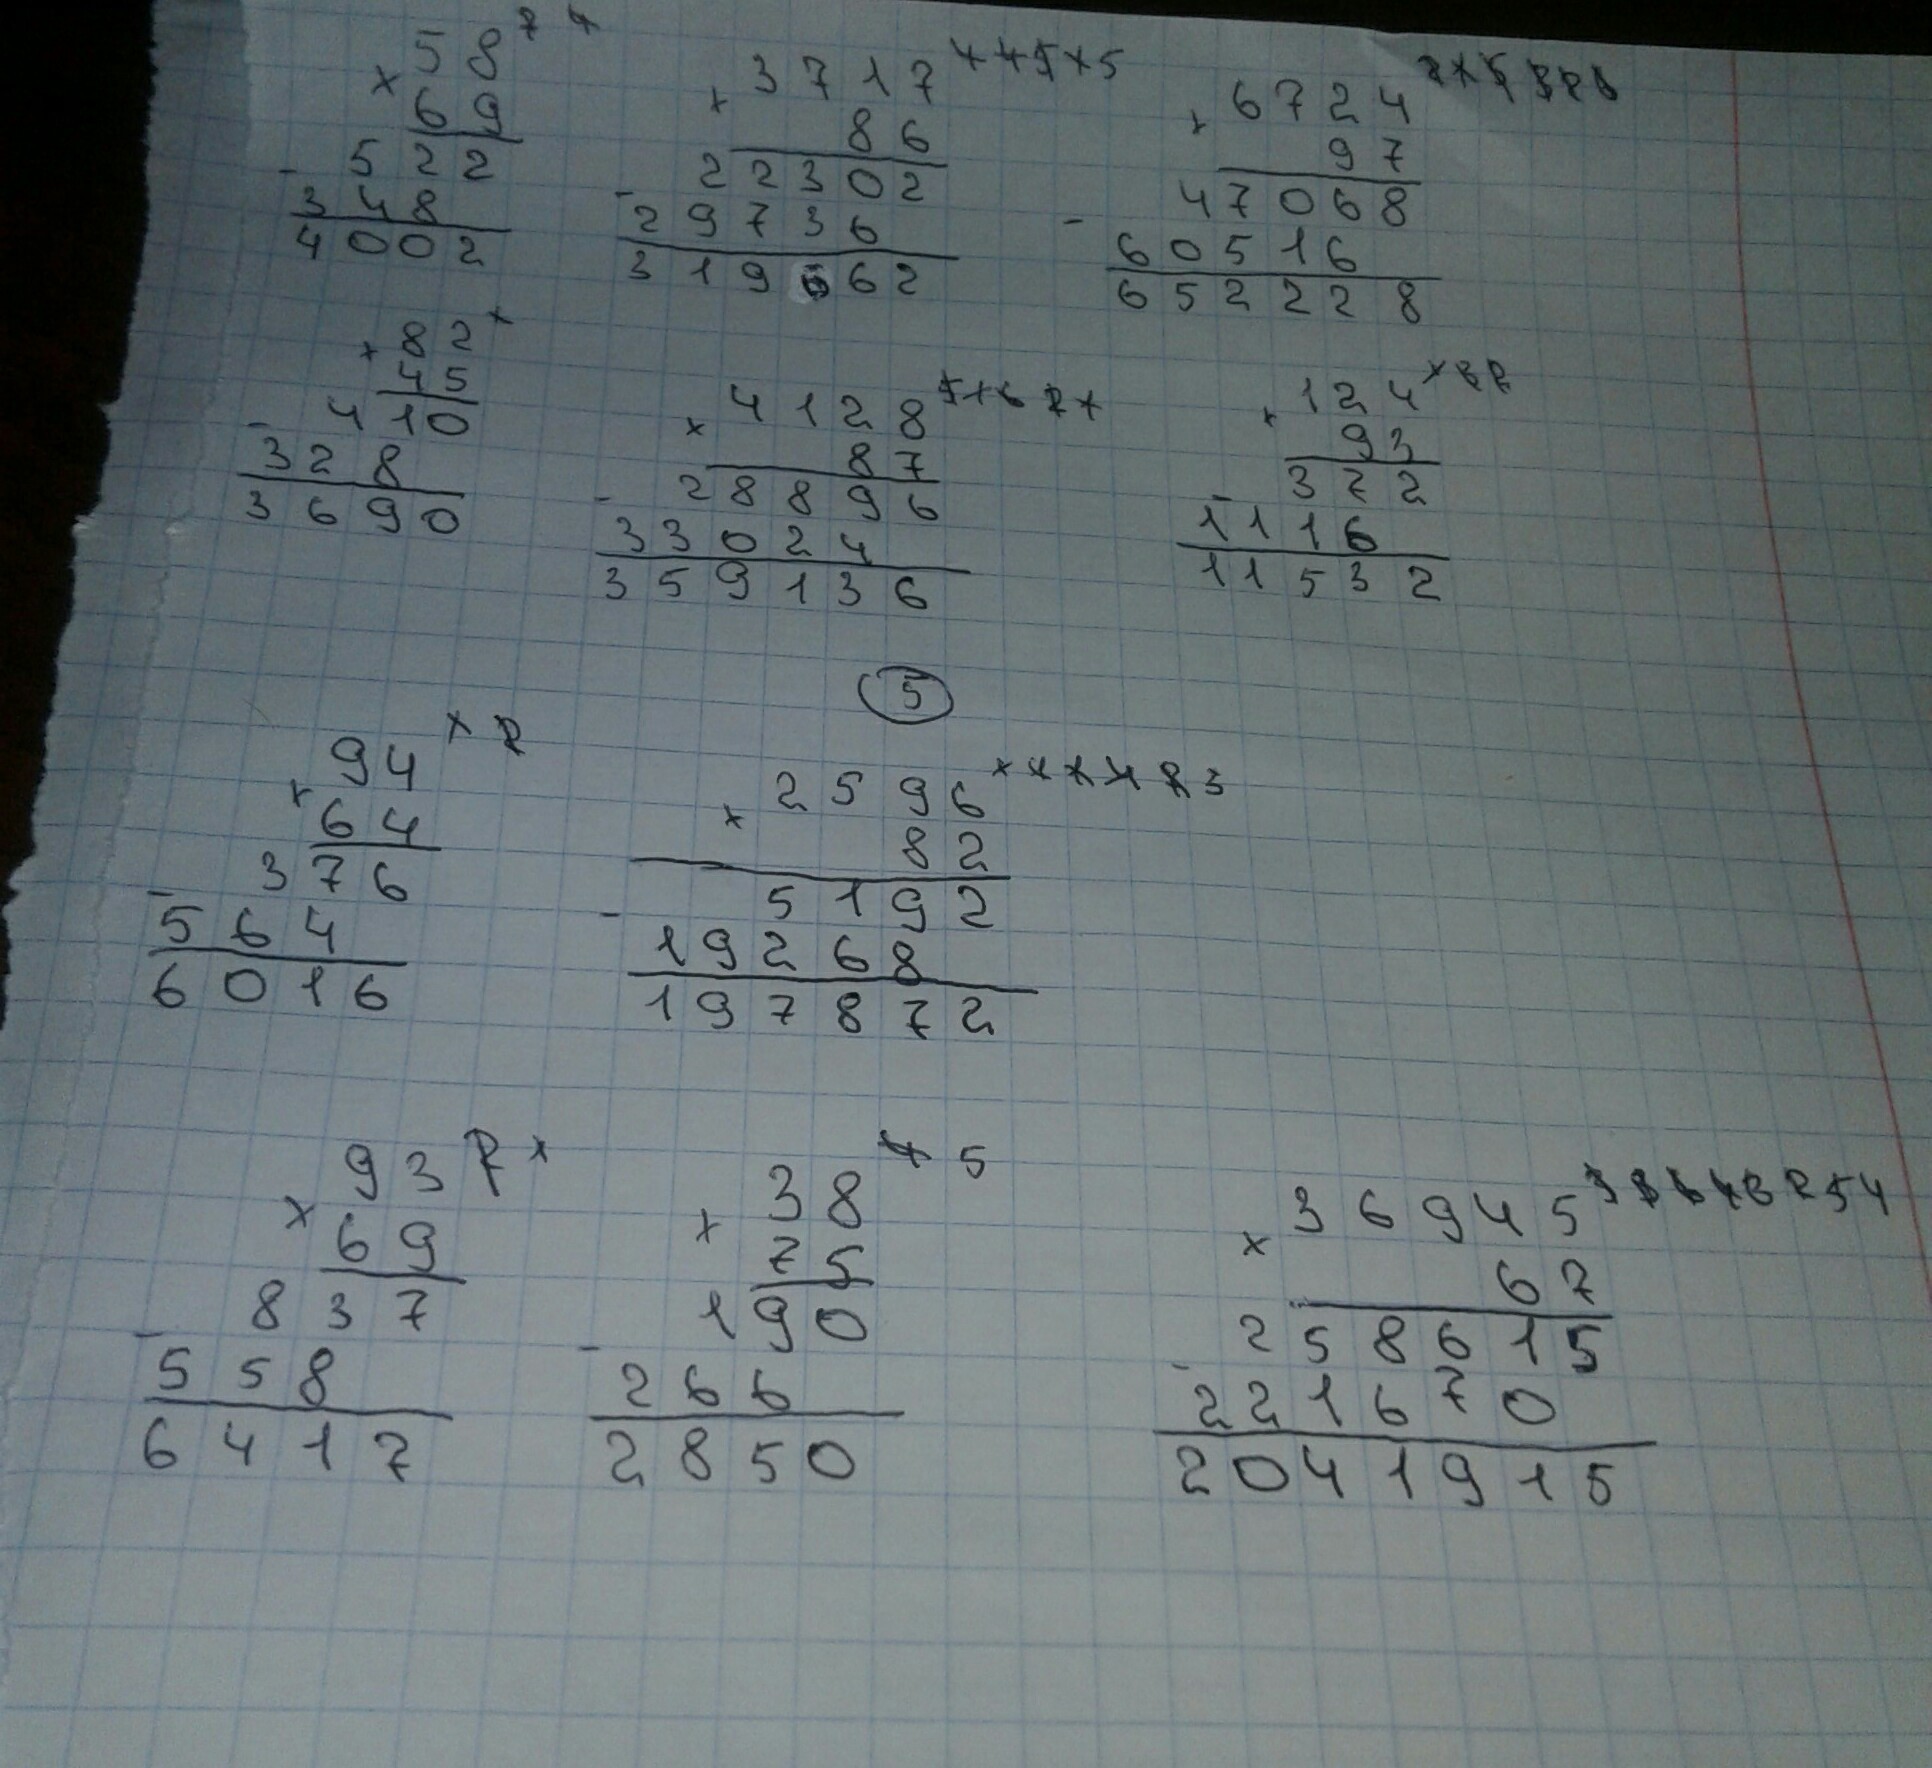 × 58
69
- 522
348
4002
× 3717
86
- 22302
29736
319662
× 6724
97
- 47068
60516
652228
× 82
45
- 410
328
3690
× 4128
87
- 28896
33024
359136
× 124
93
- 372
1116
11532
5
× 94
64
- 376
564
6016
× 2596
82
- 5192
19268
197872
× 93
69
- 837
558
6417
× 38 5
75
- 190
266
2850
× 36945
67
- 258615
221670
2041915